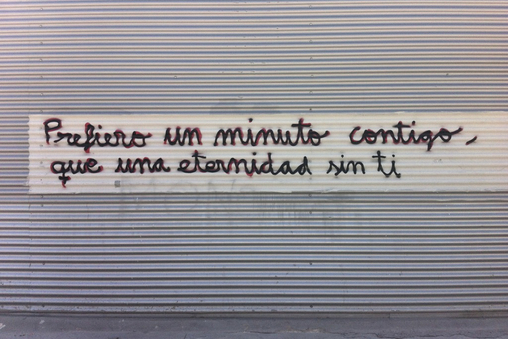 Prefiero un minuto contigo,
que una eternidad sin ti